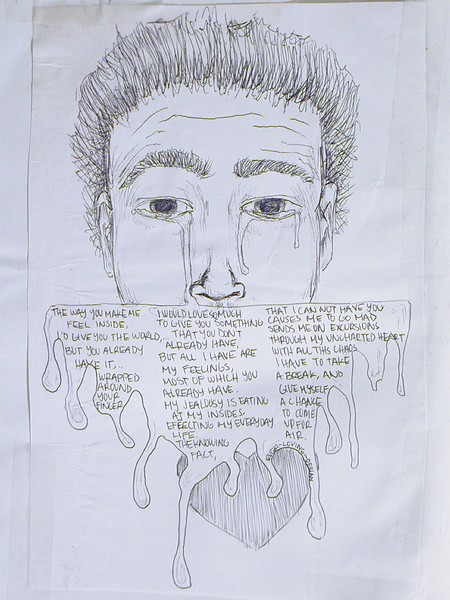 THE WAY YOU MAKE ME
FEEL INSIDE,
I'D GIVE YOU THE WORLD,
BUT YOU ALREADY
HAVE IT,..
WRAPPED
AROUND
YOUR
FINGER
I WOULD LOVE SO MUCH
TO GIVE YOU SOMETHING
THAT YOU DON'T
ALREADY HAVE
BUT ALL I HAVE ARE
MY FEELINGS,
MOST OF WHICH YOU
ALREADY HAVE
MY JEALOUSY IS EATING
AT MY INSIDES
EFFECTING MY EVERYDAY
LIFE,
THE KNOWING
FACT,
THAT I CAN NOT HAVE YOU
CAUSES ME TO GO MAD
SENDS ME ON EXCURSIONS
THROUGH MY UNCHARTED HEART
WITH ALL THIS CHAOS
I HAVE TO TAKE
A BREAK AND
GIVE MYSELF
A CHANCE
TO COME
UP FOR
AIR